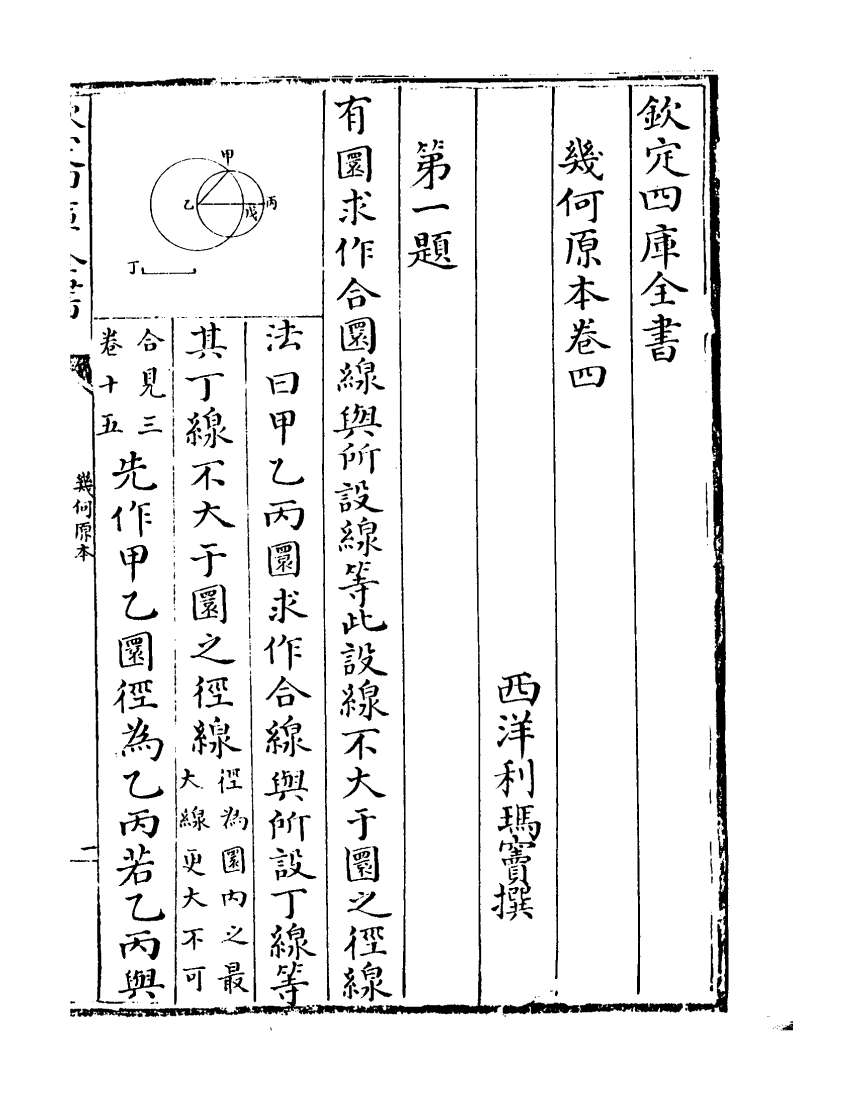 欽定四庫全書
幾何原本卷四
西洋利瑪竇撰
第一題
有圜求作合圜線與所設線等此設線不大于圜之徑線
甲
乙
丙
戊
丁
法曰甲乙丙圜求作合線與所設丁線等
其丁線不大于圜之徑線
徑為圜内之最
大線更大不可
合見三
卷十五
先作甲乙圜徑為乙丙若乙丙與
幾何原本
一